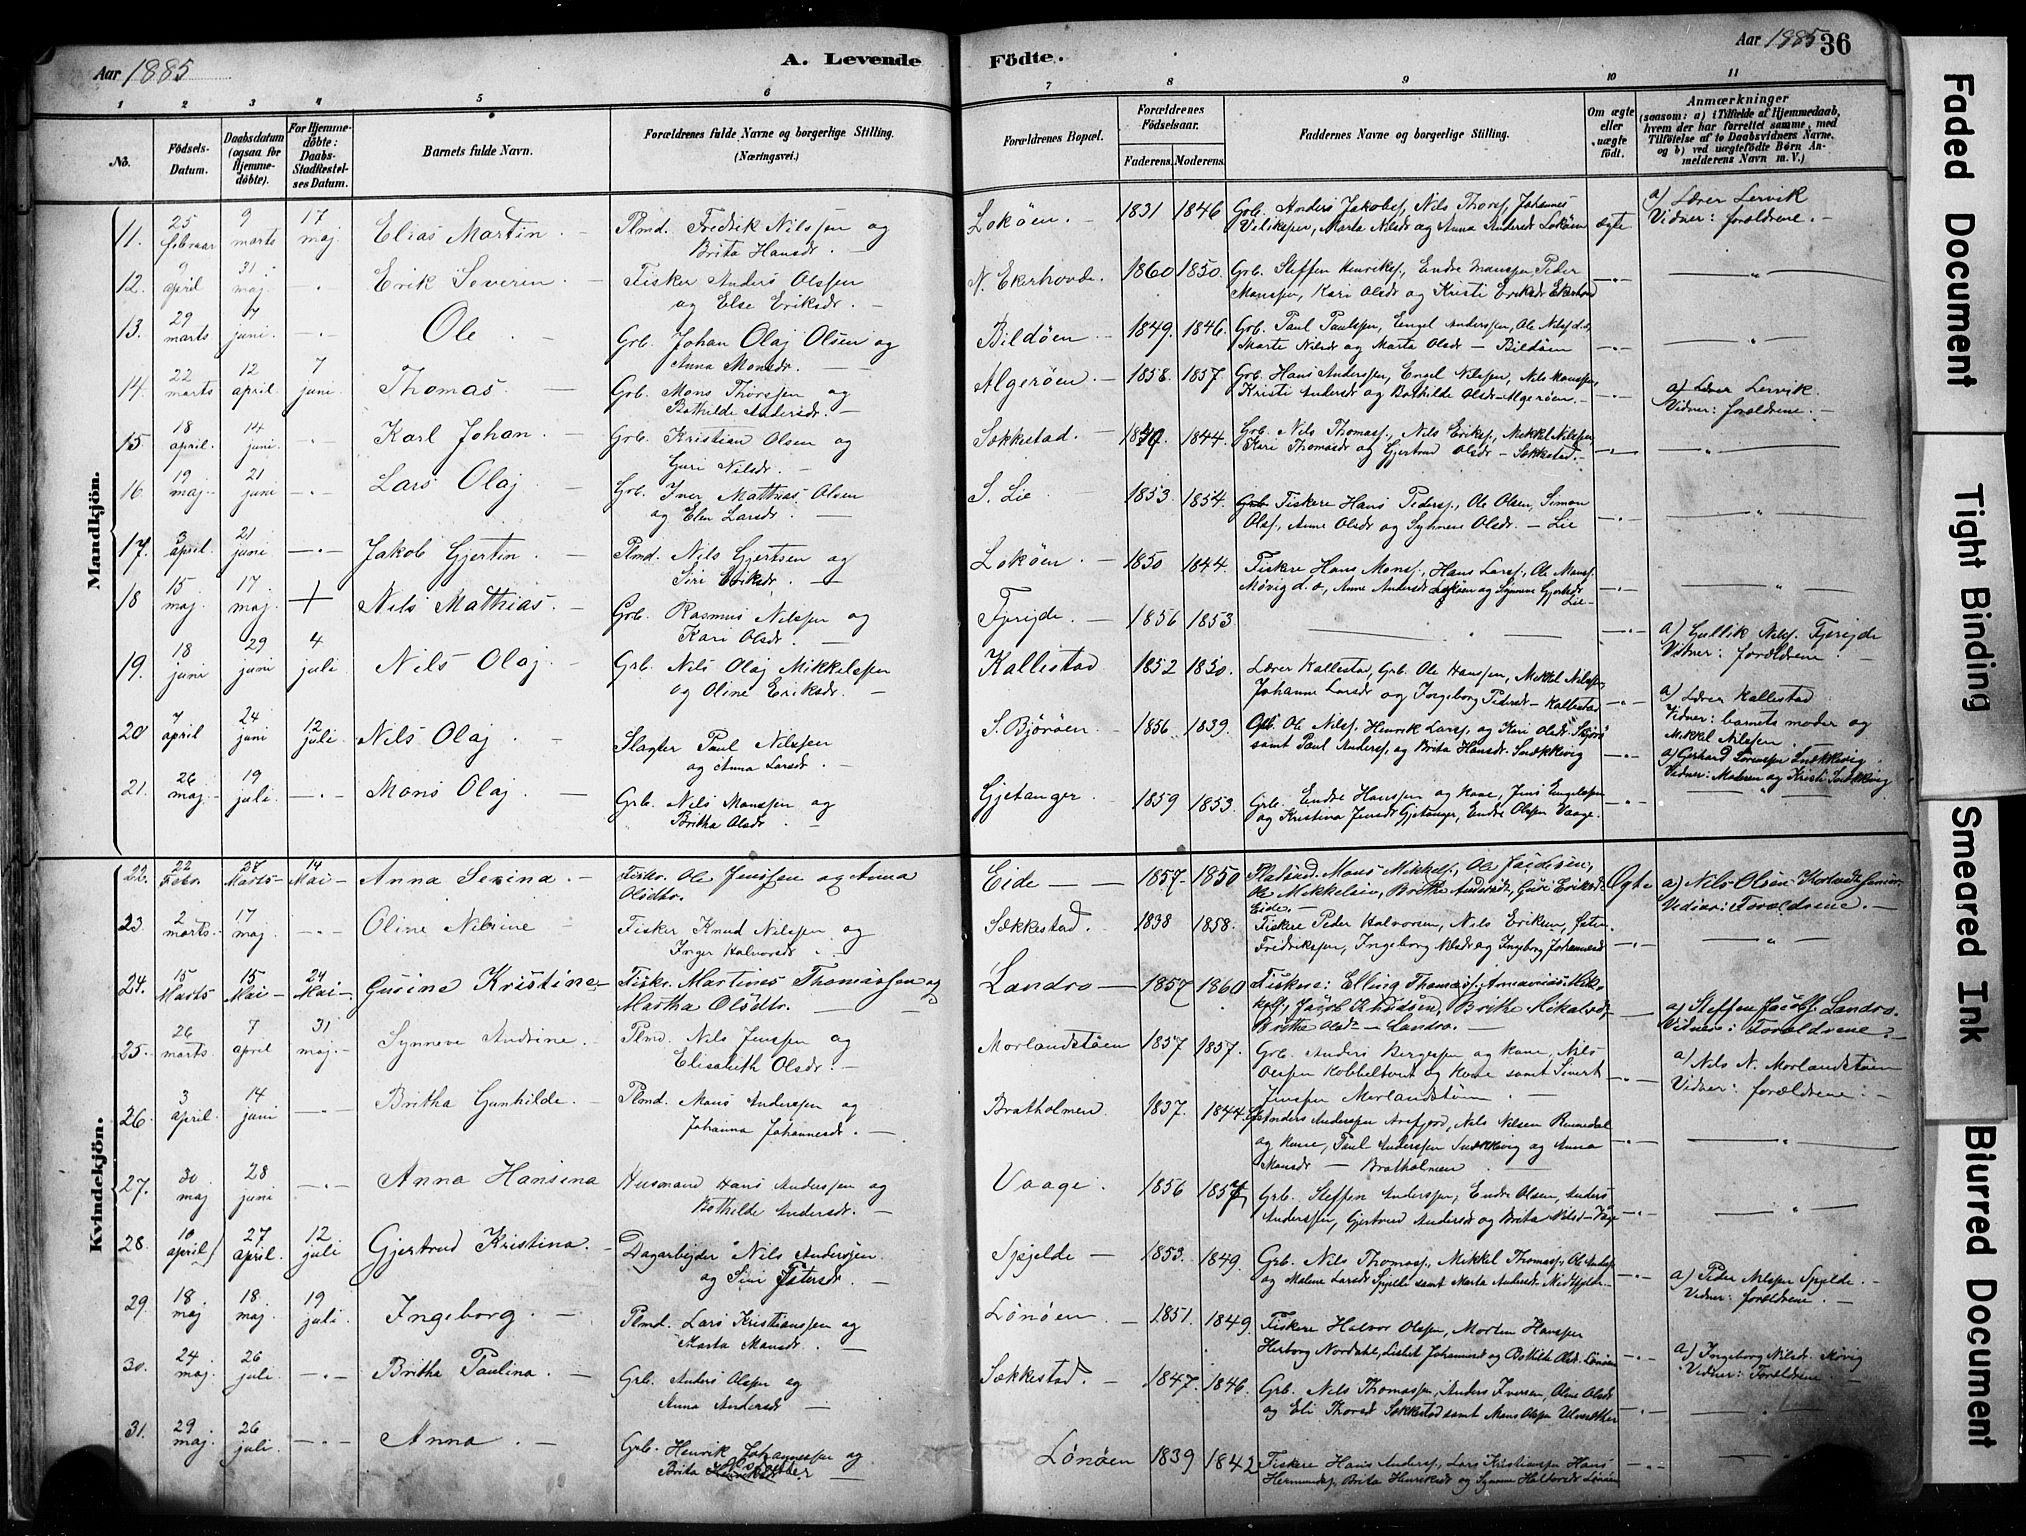 Aar 1885
A. Levende
Födte.
Aar 1885 36
1 2 3 4 5 6 7 8 9 10 11
No.
Födsels-Datum.
Daabsdatum (ogsaa for Hjemme-döbte).
For Hjemme-döbte: Daabs-Stadfæstel-ses Datum.
Barnets fulde Navn.
Forældrenes fulde Navne og borgerlige Stilling.
(Næringsvei.)
Forældrenes Bopæl.
Forældrenes Födselsaar.
Faderens. Moderens.
Faddernes Navne og borgerlige Stilling.
Om ægte eller uægte födt.
Anmærkninger
(saasom: a) i Tilfælde af Hjemmedaab, hvem der har forrettet samme, med Tilföielse af to Daabsvidners Navne, og b) ved uægtefödte Börn An-melderens Navn m. V.)
Mandkjön.
11. 25 februar 9 marts 17 maj Elias Martin. Plmd. Fredrik Nilssen og Brita Hansdr. Lokøen. 1831 1846 Grb. Anders Jakobs., Nils Thors., Johannes Marta Nilsd og Anna Andersd Lokøen ægte a) Lærer Lervik Vidner: forældrene.
12. 9 april 31 maj Erik Severin Fisker Anders Olssen og Else Eriksdr. N. Ekerhovde. 1860 1850. Grb. Steffen Henriks., Endre Monssen, Peder Monssen, Kari Olsd og Kristi Eriksdr Ekerhovd
13. 29 marts 7 juni Ole Grb. Johan Olaj Olsen og Anna Monsdr. Bildøen 1849. 1846. Grb. Paul Paulssen, Engel Anderssen, Ole Nils d.o, Marte Nilsd og Marta Olsd - Bildøen
14. 22 marts 12 april 7 juni Thomas. Grb. Mons Thorssen og Bothilde Andersdr. Algerøen. 1858. 1857. Grb. Hans Anderssen, Engel Nilssen, Nils Monssen, Kristi Andersd og Bothilde Olsd - Algerøen. a) Lærer Lervik. Vidner: forældrene.
15 18 april 14 juni Karl Johan. Grb. Kristian Olsen og Guri Nilsdr. Sækkestad. 1844. Grb. Nils Thomass., Nils Eriks., Mikkel Nilssen, Kari Thomasd og Gjertrud Olsd - Sækkestad.
16 19 maj 21 juni Lars Olaj Grb. Iver Matthias Olsen og Elen Larsdr. S. Lie 1853. 1854. Fiskere Hans Peders., Ole Olsen, Simon Ols., Anne Olsd og Synneve Olsd. - Lie
17. 3 april 21 juni Jakob Gjertin. Plmd. Nils Gjertsen og Siri Eriksdr. Lokøen. 1850 1844. Fiskere Hans Mons., Hans Lars., Ole Mons. Møvig d.o, Anne Andersd Lokøen og Synneve Gjertsd Lie
18 15 maj. 17 maj. + Nils Matthias. Grb. Rasmus Nilssen og Kari Olsdr. Fjerejde. 1856 1853. a) Gullik Nils. Fjerejde Vidner: forældrene
19. 18 juni 29 juni 4 juli Nils Olaj. Grb. Nils Olaj Mikkelssen og Oline Eriksdr. Kallestad 1852 1850. Lærer Kallestad, Grb. Ole Hanssen, Mikkel Nilssen, Johanne Larsdr og Ingeborg Pedersd - Kallestad a) Lærer Kallestad Vidner: barnets moder og Mikkel Nilssen
20 7 april 24 juni 12 juli. Nils Olaj. Slagter Paul Nilssen og Anna Larsdr. S. Bjørøen 1856. 1839. Grb. Ole Nils., Henrik Lars., og Kari Olsd. S. Bjørø samt Paul Anders., og Brita Hansd. Snekkevig a) Gerhard Lorenssen Snækkevig Vidner: Malene og Kristi Snækkevig
21. 26 maj 19 juli. Mons Olaj Grb. Nils Monssen og Britha Olsdr. Gjetanger 1859 1853. Grb. Endre Hanssen og kone, Jens Engelssen og Kristina Jensd Gjetanger, Endre Olssen Vaage.
Kvindekjön.
22. 22 Febr. 27 Marts 14 Mai Anna Serina. Fisker Ole Jenssen og Anna Olsdtr. Eide 1857 1850 Mons Mikkels., Ole Jacobsen, Ole Mikkelsen, Brithe Andersdr, Guri Eriksd. Eide. Ægte a) Nils Olsen Vidner: Forældrene.
23. 2 marts 17 maj. Oline Nilsine Fisker Knud Nilssen og Inger Halvorsd. Sækkestad. 1838 1858. Fiskere Peder Halvorsen, Nils Eriksen, Fredrikssen, Ingeborg Nilsd og Ingeborg Johannesd
24. 15 Marts 15 Mai 24 Mai Gurine Kristine Fisker Martines Thomassen og Martha Olsdtr. Landro 1857 1860 Fiskerne: Elling Thomass., Ananias Mikkels., Jacob Knudsen, Brithe Mikalsd, Brithe Olsd - Landro. a) Steffen Jacobs. Landro. Vidner: Forældrene.
25. 26 marts 7 april 31 maj. Synneve Andrine. Plmd. Nils Jenssen og Elisabeth Olsdr. Morlandstøen 1857 1857. Grb. Anders Bergessen og kone, Nils Olssen Kobbeltveit og kone samt Sivert Jenssen Morlandstøen. a) Nils N. Morlandstøen Vidner: forældrene.
26. 3 april. 14 juni Britha Gunhilde. Plmd. Mons Anderssen og Johanna Johannesdr. Bratholmen. 1837. 1844. Anders Anderssen Arefjord, Nils Nilsen Rennedal og kone, Paul Anderssen Snekkevig og Anna Monsdr - Bratholmen
27. 30 maj 28 juni Anna Hansina Husmand Hans Anderssen og Bothilde Andersdr. Vaage. 1856 1857 Grb. Steffen Anderssen, Endre Olsen, Anders Anderssen, Gjertrud Andersd og Brita Nilsd - Våge
28. 10 april 27 april. 12 juli Gjertrud Kristina. Dagarbejder Nils Anderssen og Siri Petersdr. Spjelde 1853. 1849. Grb. Nils Thomass., Mikkel Thomass., Ole Anders. og Malene Larsd Spjelde samt Marta Andersd. Midtspjelde a) Peder Nilssen Spjelde. Vidner: forældrene.
29. 18 maj 18 maj. 19 juli. Ingeborg. Plmd. Lars Kristianssen og Marta Monsdr. Lønøen 1851. 1849. Fiskere Halvor Olssen, Morten Hanssen, Herborg Nordahl, Lisbet Johannesd og Bothilde Olsd. Lønøen a) Ingeborg Nilsd. Møvig Vidner: Forældrene.
30. 24 maj. 26 juli. Britha Paulina. Grb. Anders Olssen og Anna Andersdr Sækkestad 1847. 1846. Grb. Nils Thomassen, Anders Iversen, Oline Olsd og Eli Thorsd Sækkestad samt Mons Olssen Ulvesætter
31. 29 maj. 26 juli. Anna Grb. Henrik Johannessen og Brita Lønøen 1839 1842 Fiskere Hans Anders., Lars Kristianssen, Hans Hermunds., Brita Henriksd og Synneve Halvorsd Lønøen
Faded Document
Tight Binding
Smeared Ink
Blurred Document